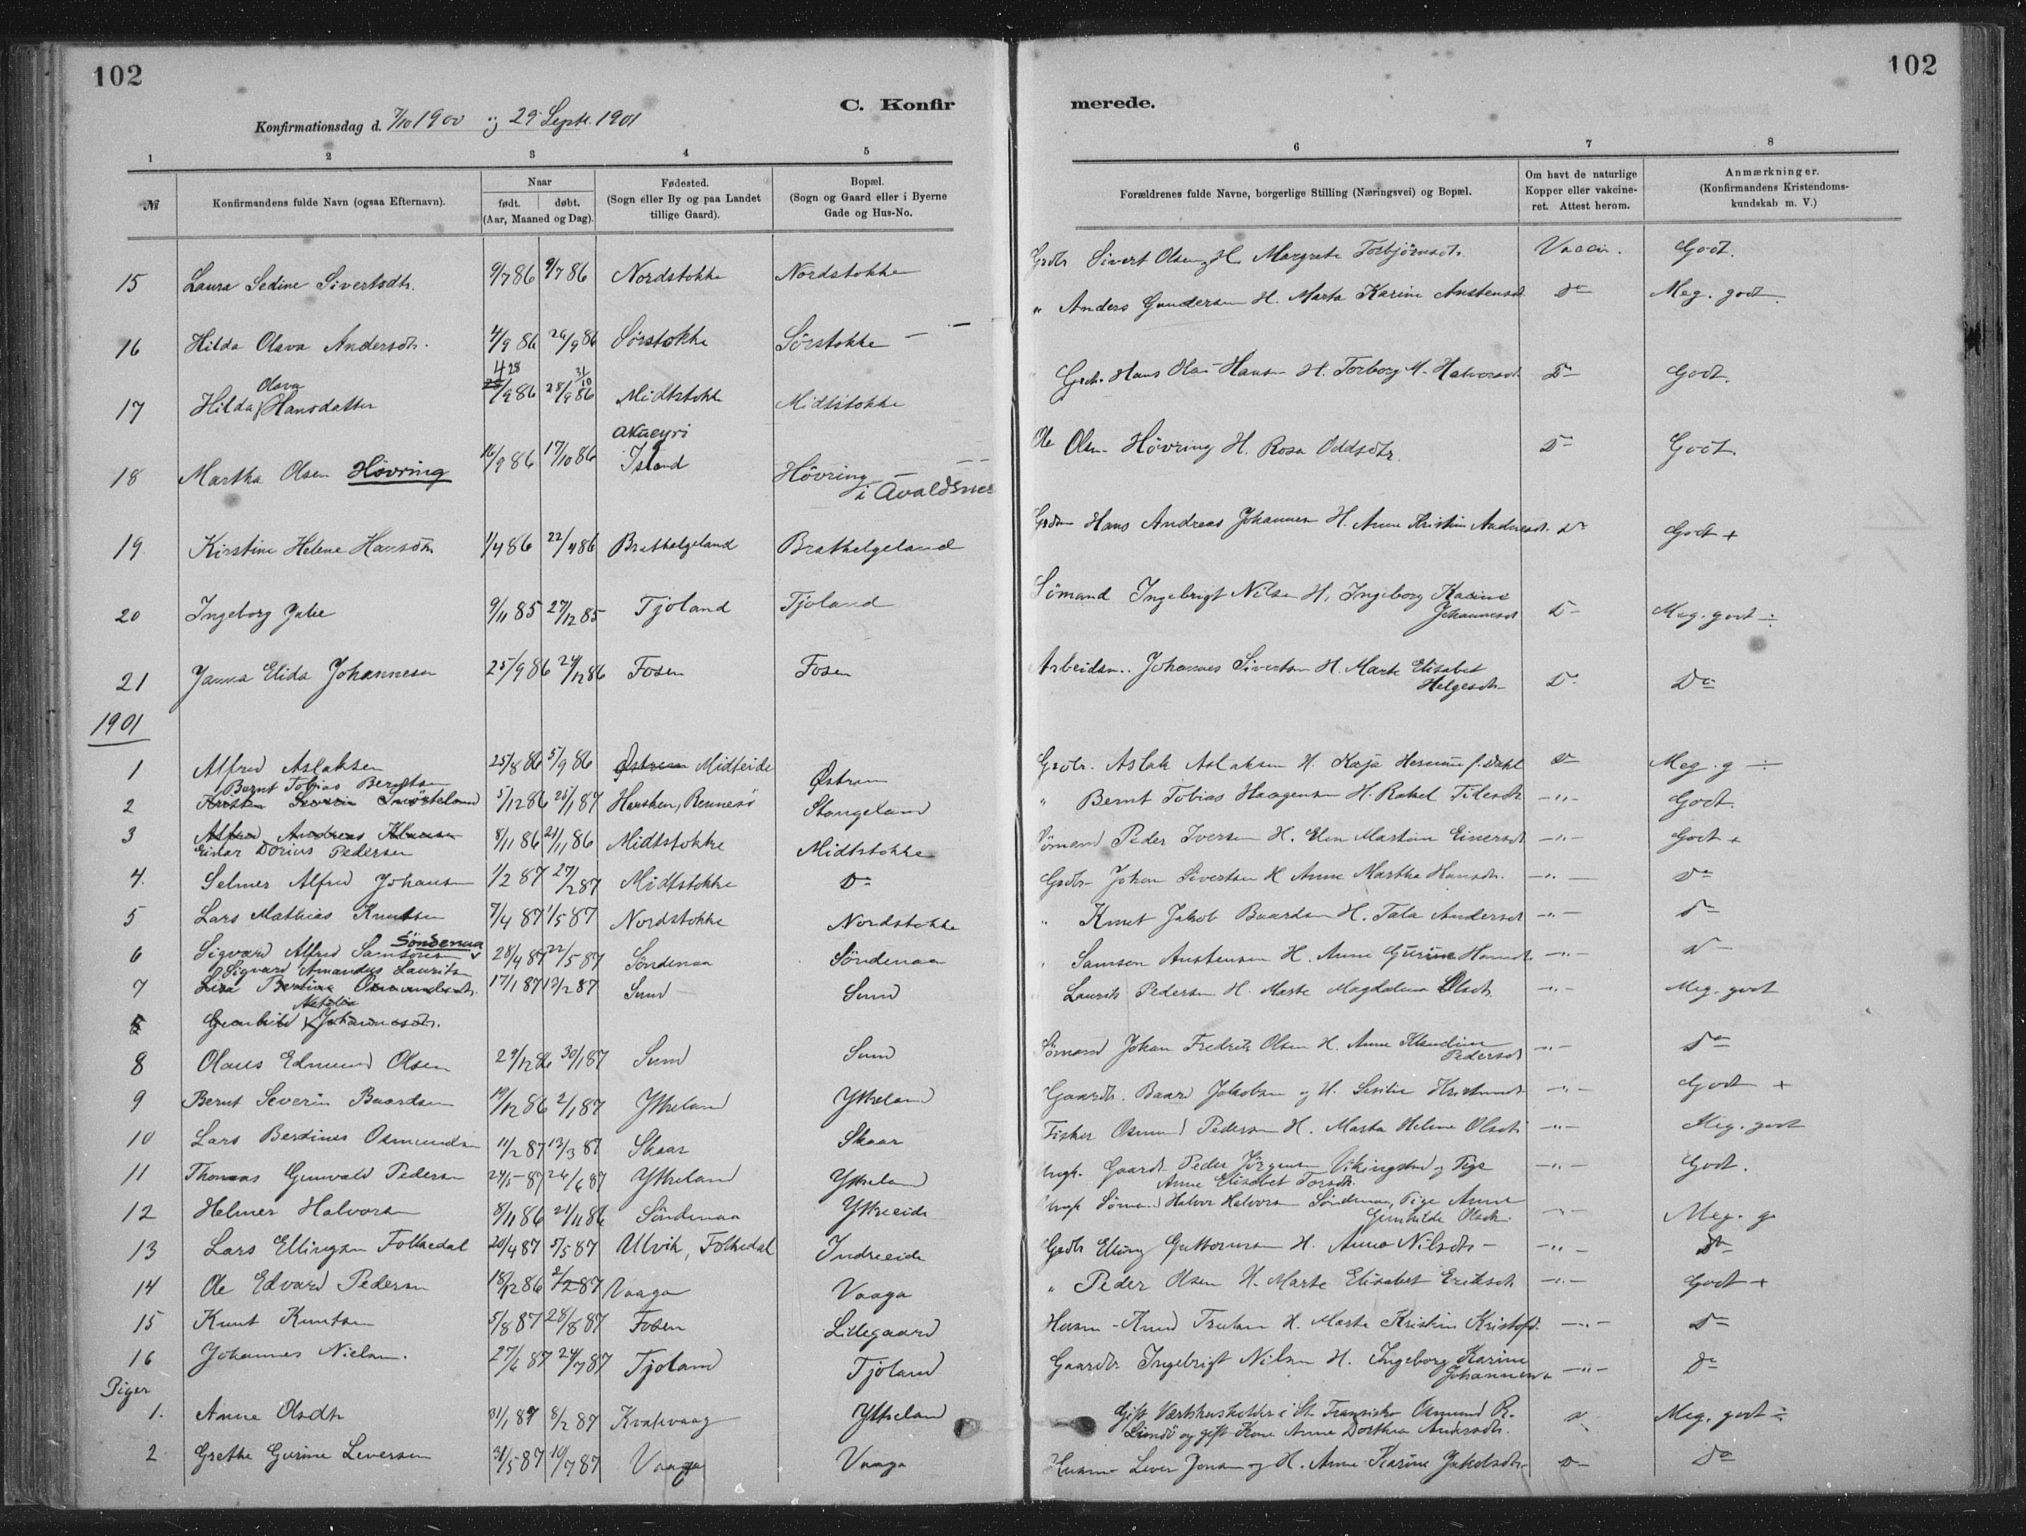 102
102
C. Konfir
merede.
Konfirmationsdag d. 7/10 1900 og 29 Septr. 1901
1 2 3 4 5 6 7 8
№
Konfirmandens fulde Navn (ogsaa Efternavn).
Naar
født. døbt.
(Aar, Maaned og Dag).
Fødested.
(Sogn eller By og paa Landet
tillige Gaard).
Bopæl.
(Sogn og Gaard eller i Byerne
Gade og Hus-No.
Forældrenes fulde Navne, borgerlige Stilling (Næringsvei) og Bopæl.
Om havt de naturlige
Kopper eller vakcine-
ret. Attest herom.
Anmærkninger.
(Konfirmandens Kristendoms-
kundskab m. V.)
15 Laura Sedine Sivertsdtr. 9/7 86 9/7 86 Nordstokke Nordstokke Grdbr Sivert Olsen, H. Margrete Torbjörnsdtr. Vaccin. Godt.
16 Hilda Olava Andersdtr. 4/9 86 26/9 86 Sörstokke Sörstokke " Anders Gundersen H. Marta Karine Anstensdt. Do Meg. godt ÷
17 Hilda Olava Hansdatter 28/9 86 31/10 86 Midtstokke Midtstokke Grdbr. Hans Hansen H. Torborg M. Halvorsdt. Do Godt.
18 Martha Olsen Hövring 16/9 86 17/10 86 Akueyri Island Hövring i Avaldsnes Ole Olsen Hövring H. Rosa Oddsdtr. Do Godt.
19 Kirstine Helene Hansdtr 1/4 86 22/4 86 Brathelgeland Brathelgeland Hans Andreas Johannesen H. Anne Kristine Andersdt. Do Godt +
20 Ingeborg Julie 9/11 85 27/12 85 Tjöland Tjöland Sömand Ingebrigt Nilsen H. Ingeborg Karine Johannesdt Do Meg. godt ÷
21 Janna Elida Johannesen 25/9 86 24/12 86 Fosen Fosen Arbeidsm. Johannes Sivertsen H. Marte Elisabet Helgesdtr Do Do
1901
1 Alfred Aslaksen 25/8 86 5/9 86 Midteide Östrem Grdbr. Aslak Aslaksen H. Kaja f. Dahl Do Meg. g ÷
2 Bernt Tobias Berntsen 5/12 86 25/1 87 Hausken, Rennesö Stangeland " Bernt Tobias Haagensen H. Rakel —"— Godt.
3 Alfred Andreas Klausen
Einar Dorius Pedersen 8/11 86 21/11 86 Midtstokke Midtstokke Sömand Peder Iversen H. Elen Martine Einersdt —"— Godt +
4. Selmer Alfred Johansen 1/2 87 27/2 87 Midtstokke Do Grdbr Johan Sivertsen H Anne Martha Hansdtr. —"— Do
5 Lars Mathias Knutsen 7/4 87 1/5 87 Nordstokke Nordstokke " Knut Jakob Baardsen H. Tala Andersdt —"— Do
6 Sigvard Alfred Samsonsen Söndenaa 28/4 87 22/5 87 Söndenaa Söndenaa " Samson Anstensen H. Anne Gurine Hansdt —"— Do
7 Sigvard Amandus Lauritsen 17/1 87 13/2 87 Sund Sund Laurits Pedersen H. Marte Magdalena Olsdt. —"— Meg. godt
Gunhild Natalia Johannesdtr.
8 Olaus Edmund Olsen 29/12 86 30/1 87 Sund Sund Sömand Johan Fredrik Olsen H. Anne Klaudine Pedersdt —"— Do
9 Bernt Severin Baardsen 19/12 86 2/1 87 Ytreland Ytreland Gaardbr. Baard Jakobsen og H. Sesilie —"— Godt +
10 Lars Berdines Osmundsen 11/2 87 13/3 87 Skaar Skaar Fisker Osmund Pedersen H. Marta Helene Olsdt. —"— Meg. godt
11 Thomas Gunvald Pedersen 24/5 87 26/6 87 Ytreland Ytreland Ungk. Gaardbr Peder Jörgensen Vikingstad og Pige Anne Elisabet Torsdtr. —"— Godt.
12 Helmer Halvorsen 8/11 86 21/11 86 Söndenaa Ytreeide Ungk Sömand Halvor Halvorsen Söndenaa, Pige Anne Gunhilde Olsdtr. —"— Meg. g
13 Lars Ellingsen Folkedal 20/4 87 5/5 87 Ullvik, Folkedal Indreeide Grdbr Elling Guttormsen H. Anna Nilsdtr —"— Do
14 Ole Edvard Pedersen 18/12 86 2/2 87 Vaaga Vaaga " Peder Olsen H. Marte Elisabet Eriksdt. —"— Godt +
15 Knut Knutsen 5/8 87 28/8 87 Fosen Lillegaard Husm. H. Marte Kristine —"— Do
16 Johannes Nielsen. 27/6 87 24/7 87 Tjöland Tjöland Gaardbr. Ingebrigt Nilsen H. Ingeborg Karine Johannesen —"— Do
Piger
1. Anne Olsdtr 31/1 87 8/2 87 Kvalevaag Ytreland Gift Værtshusholder i St. Fransisko Osmund R. og gift Kone Anne Dorthea Andersdtr. Do Meg. godt ÷
2 Grethe Gurine Leversen 31/5 87 10/7 87 Vaaga Vaaga Husm. Lever Jonsen og H. Anne Karine Jakobsdtr. Do Do